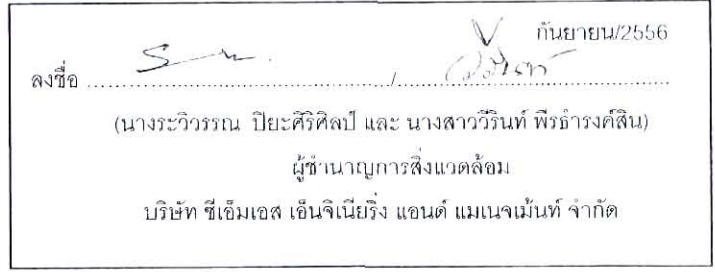 กันยายน/2556
ลงชื่อ ............................................/............................................
(นางระวิวรรณ ปิยะศิริศิลป์ และ นางสาววีรินท์ พีรธำรงค์สิน)
ผู้ชำนาญการสิ่งแวดล้อม
บริษัท ซีเอ็มเอส เอ็นจิเนียริ่ง แอนด์ แมเนจเม้นท์ จำกัด